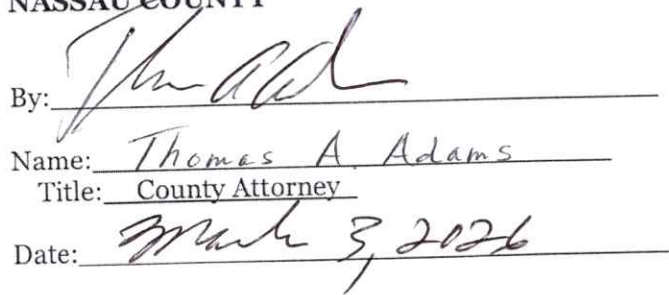 NASSAU COUNTY
By:
Name: Thomas A. Adams
Title: County Attorney
Date: March 3, 2026